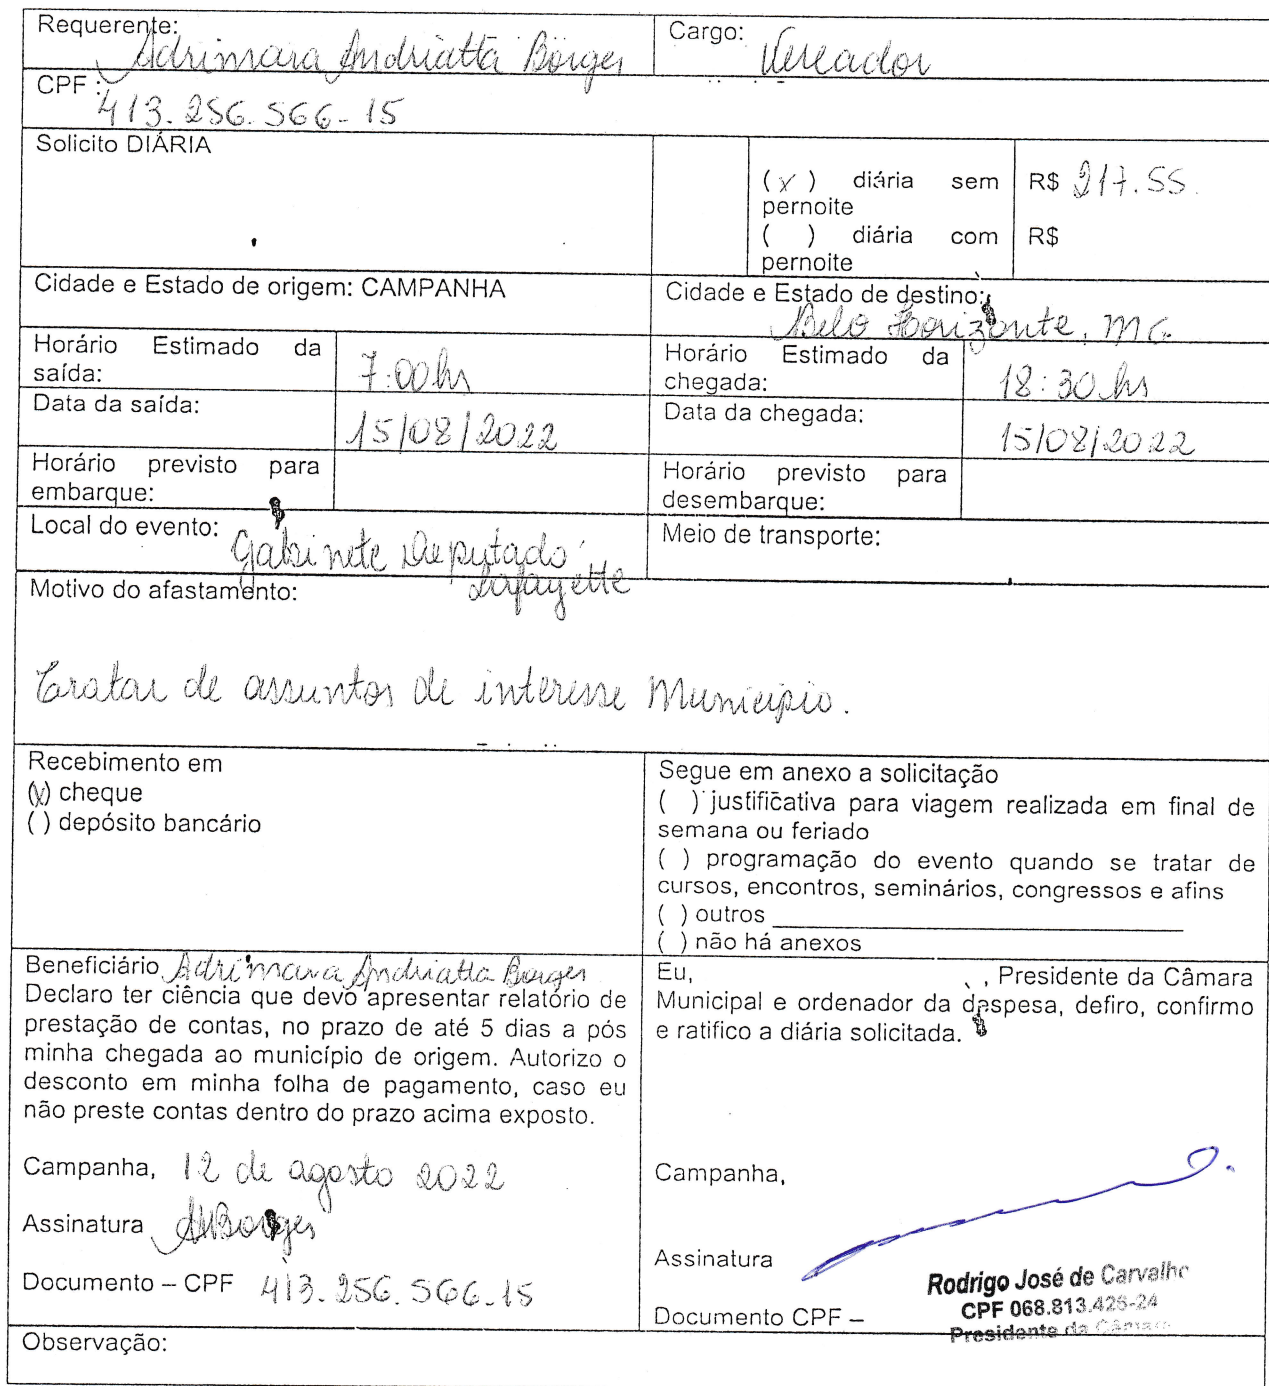 Requerente: Adrimara Andriatta Borges
Cargo: Vereador
CPF : 413.256.566-15
Solicito DIÁRIA
(x) diária sem
pernoite
R$ 217.55.
( ) diária com
pernoite
R$
Cidade e Estado de origem: CAMPANHA
Cidade e Estado de destino:
Belo Horizonte, MG
Horário Estimado da
saída:
7:00 hs
Horário Estimado da
chegada:
18:30 hs
Data da saída:
15/08/2022
Data da chegada:
15/08/2022
Horário previsto para
embarque:
Horário previsto para
desembarque:
Local do evento: Gabinete Deputado
Lafayette
Meio de transporte:
Motivo do afastamento:
Tratar de assuntos de interesse Município.
Recebimento em
(x) cheque
( ) depósito bancário
Segue em anexo a solicitação
( ) justificativa para viagem realizada em final de
semana ou feriado
( ) programação do evento quando se tratar de
cursos, encontros, seminários, congressos e afins
( ) outros
( ) não há anexos
Beneficiário Adrimara Andriatta Borges
Declaro ter ciência que devo apresentar relatório de
prestação de contas, no prazo de até 5 dias a pós
minha chegada ao município de origem. Autorizo o
desconto em minha folha de pagamento, caso eu
não preste contas dentro do prazo acima exposto.
Campanha, 12 de agosto 2022
Assinatura AABorges
Documento – CPF 413.256.566-15
Eu, , Presidente da Câmara
Municipal e ordenador da despesa, defiro, confirmo
e ratifico a diária solicitada.
Campanha,
Assinatura
Documento CPF –
Rodrigo José de Carvalho
CPF 068.813.426-24
Presidente da Câmara
Observação: